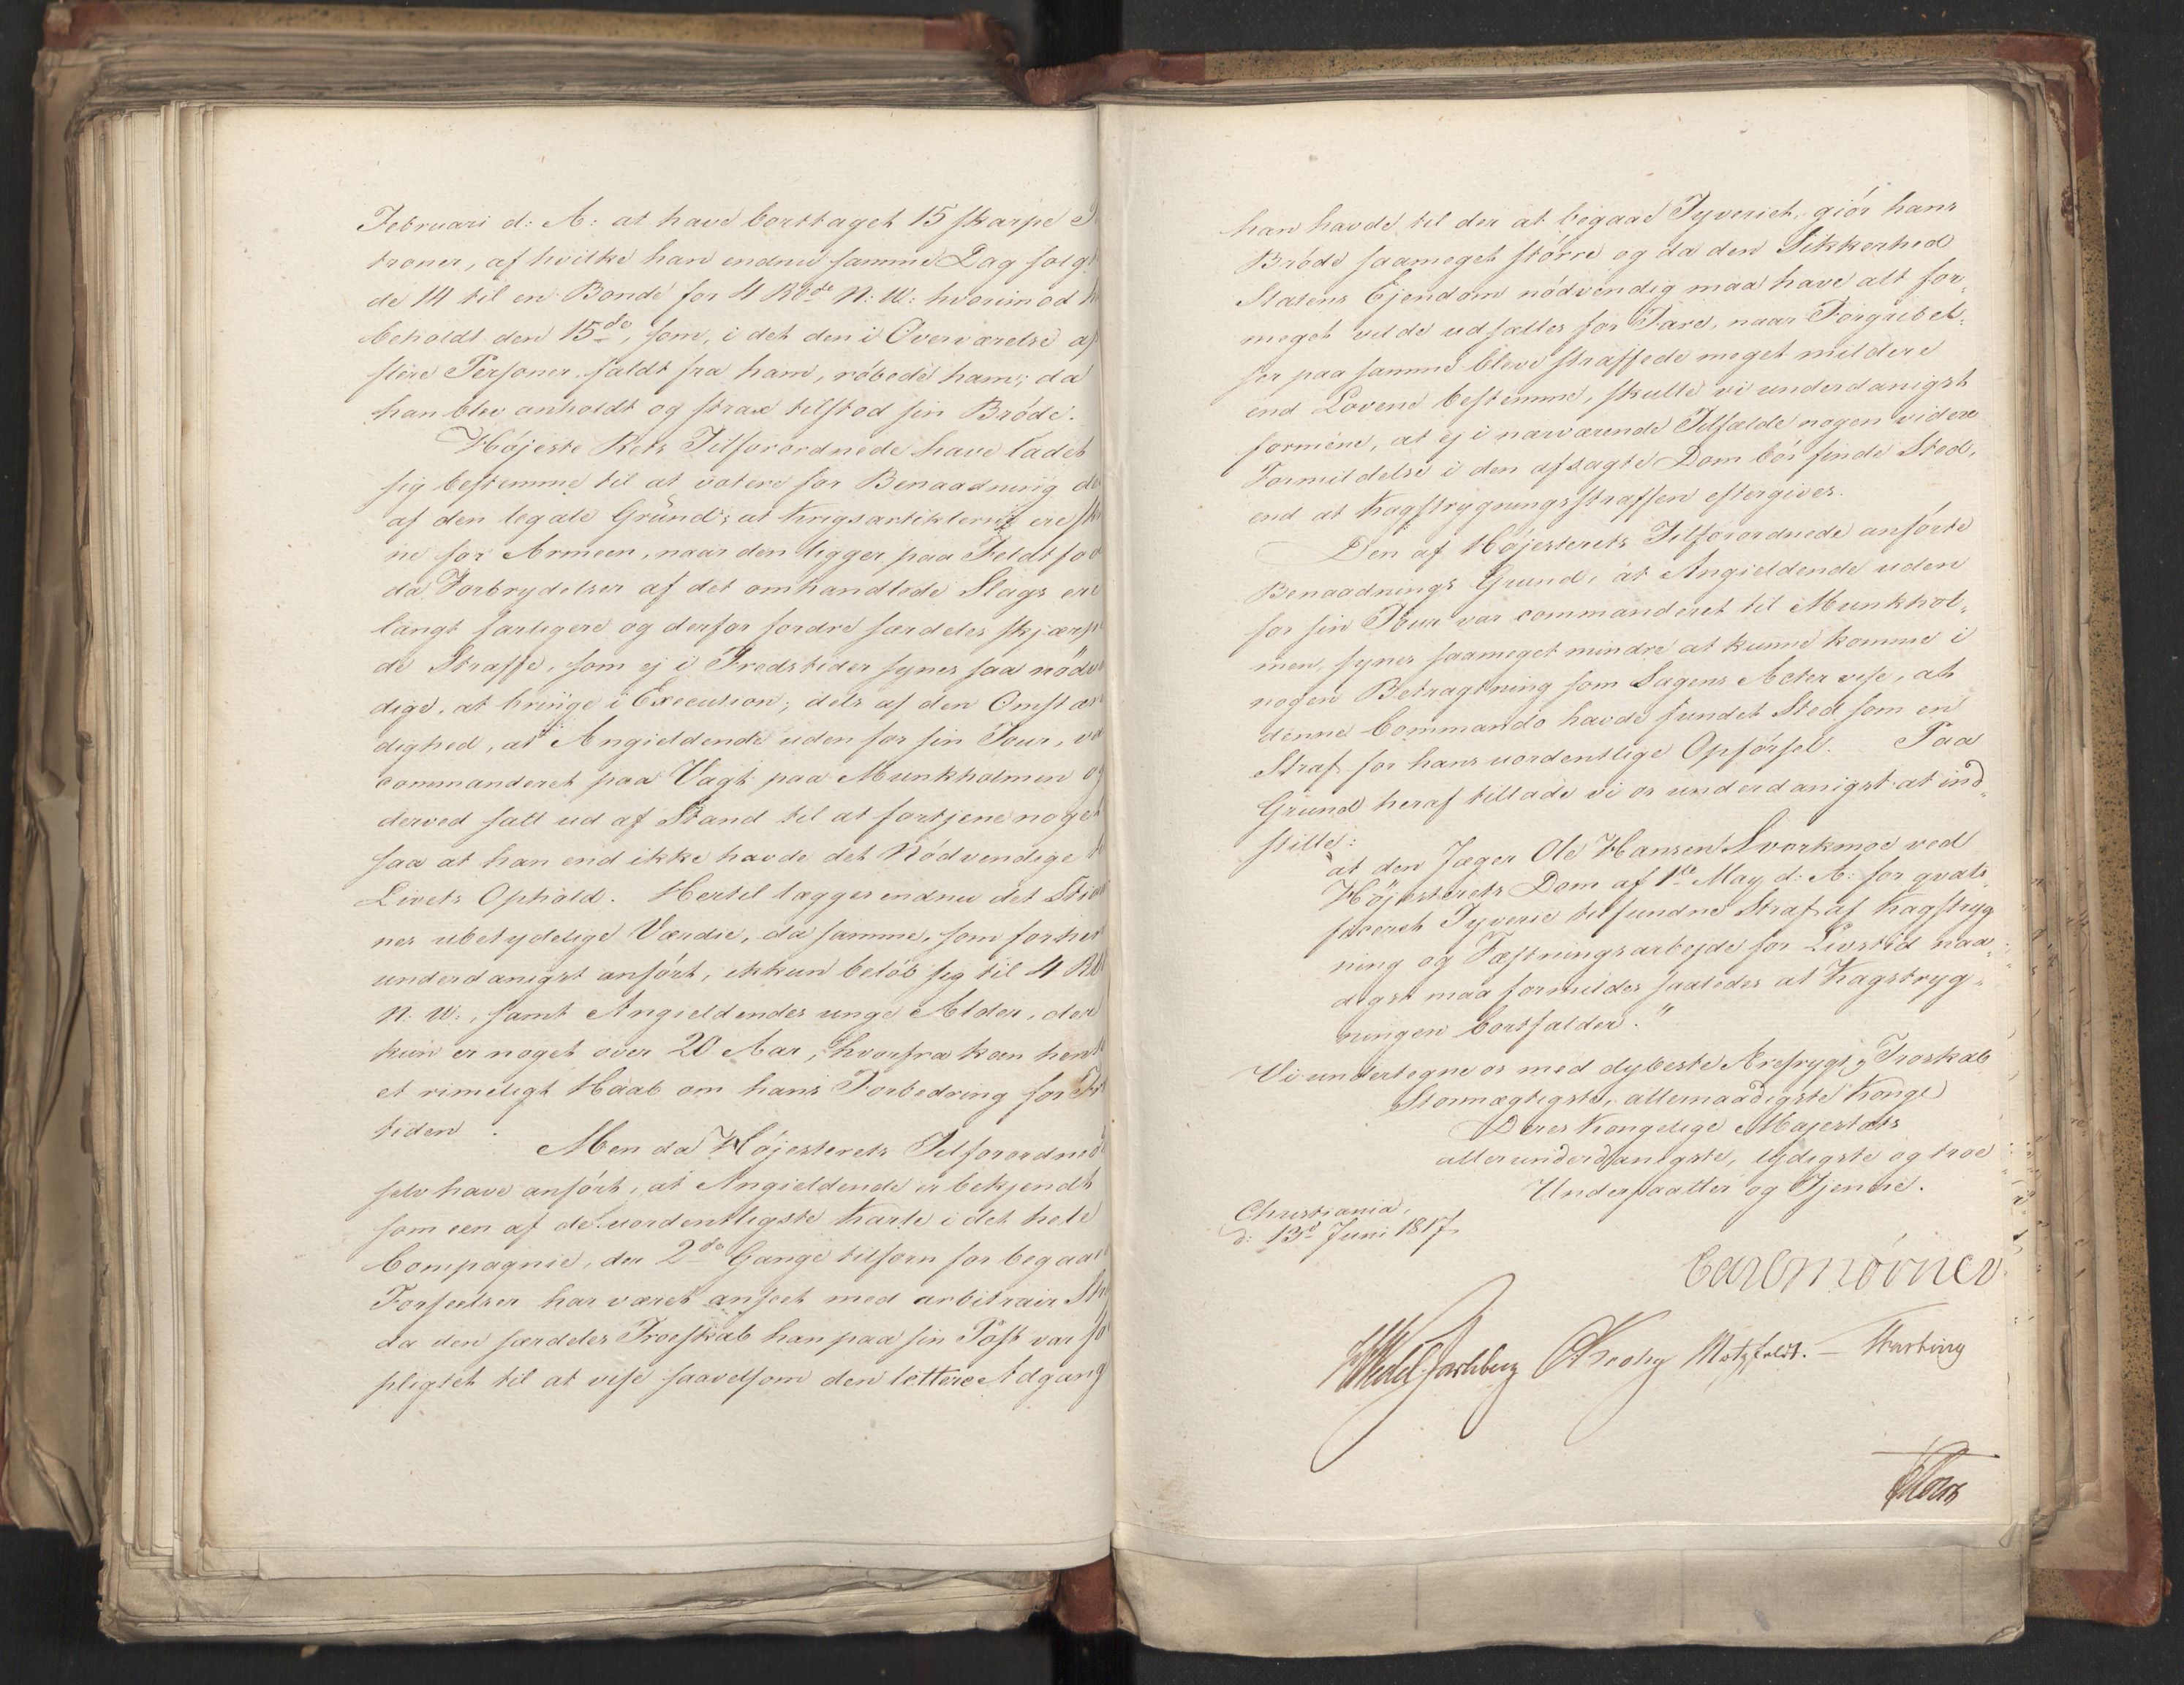 Februari d: A: at have borttaget 15 skarpe
troner, af hvilke han endnu samme Dag solg
de 14 til en Bonde for 4 Rbd N: W: hvorimod
beholdt den 15de, som, i det den i Overværelse af
flere Personer faldt fra ham, röbede ham; da
han blev anholdt og strax tilstod sin Bröde.
Höjeste Rets Tilforordnede have ladet
sig bestemme til at votere for Benaadning
af den legale Grund; at Krigsartiklerne ere
ne for Armeen, naar den ligger paa Feldtfod
da Forbrydelser af det omhandlede Slags ere
langt farligere og derfor fordre særdeles skjærp
de Straffe, som ej i Fredstider synes saa nödv
dige, at bringe i Execution; dels af den Omstæn
dighed, at Angieldende uden for sin Tour, va
commanderet paa Vagt paa Munkholmen og
derved satt ud af Stand til at fortjene noget
saa at han end ikke havde det Nödvendige
Livets Ophold. Hertil lægges endnu det
nes ubetydelige Værdie, da samme, som forhen
underdanigst anfört, ikkun belöb sig til 4 Rb
N: W:, samt Angieldendes unge Alder, der
kun er noget over 20 Aar, hvorfra kan hent
et rimeligt Haab om hans Forbedring for
tiden.
Men da Höjesterets Tilforordned
selv have anfört, at Angieldende er bekjendt
som een af de uordentligste Karle i det hele
Compagnie, der 2de Gange tilforn for begaae
Forseelser har været anseet med arbitrair Str
da den særdeles Troeskab han paa sin Post var fo
pligtet til at vise saavelsom den lettere Adgang
han havde til der at begaae Tyveriet, giör hans
Bröde saameget större og da den Sikkerhed
Statens Ejendom nödvendig maa have alt for
meget vilde udsættes for Fare, naar Forgribel-
ser paa samme bleve straffede meget mildere
end Lovene bestemme, skulle vi underdanigst
formene, at ej i nærværende Tilfælde nogen videre
Formildelse i den afsagte Dom bör finde Sted,
end at Kagstrygningsstraffen eftergives.
Den af Höjesterets Tilforordnede anförte
Benaadnings Grund, at Angieldende uden
for sin Tour var commanderet til Munkhol-
men, synes saameget mindre at kunne komme i
nogen Betragtning som Sagens Acter vise, at
denne Commando havde fundet Sted som en
Straf for hans uordentlige Opförsel. Paa
Grund heraf tillade vi os underdanigst at ind-
stille:
"at den Jæger Ole Hansen Svorkmoe ved
Höjesterets Dom af 1ste May d: A: for qvali-
ficeret Tyverie tilfundne Straf af Kagstryg
ning og Fæstningsarbejde for Livstid naa-
digst maa formildes saaledes at Kagstryg-
ningen bortfalder."
Vi undertegne os med dybeste Ærefrygt og Troskab
Stormægtigste, allernaadigste Konge
Deres Kongelige Majestæts
allerunderdanigste, lydigste og troe
Undersaatter og Tjenere.
Christiania,
d: 13d Juni 1817.
Carl Mörner
HWedel Jarlsberg Krohg Motzfeldt. –